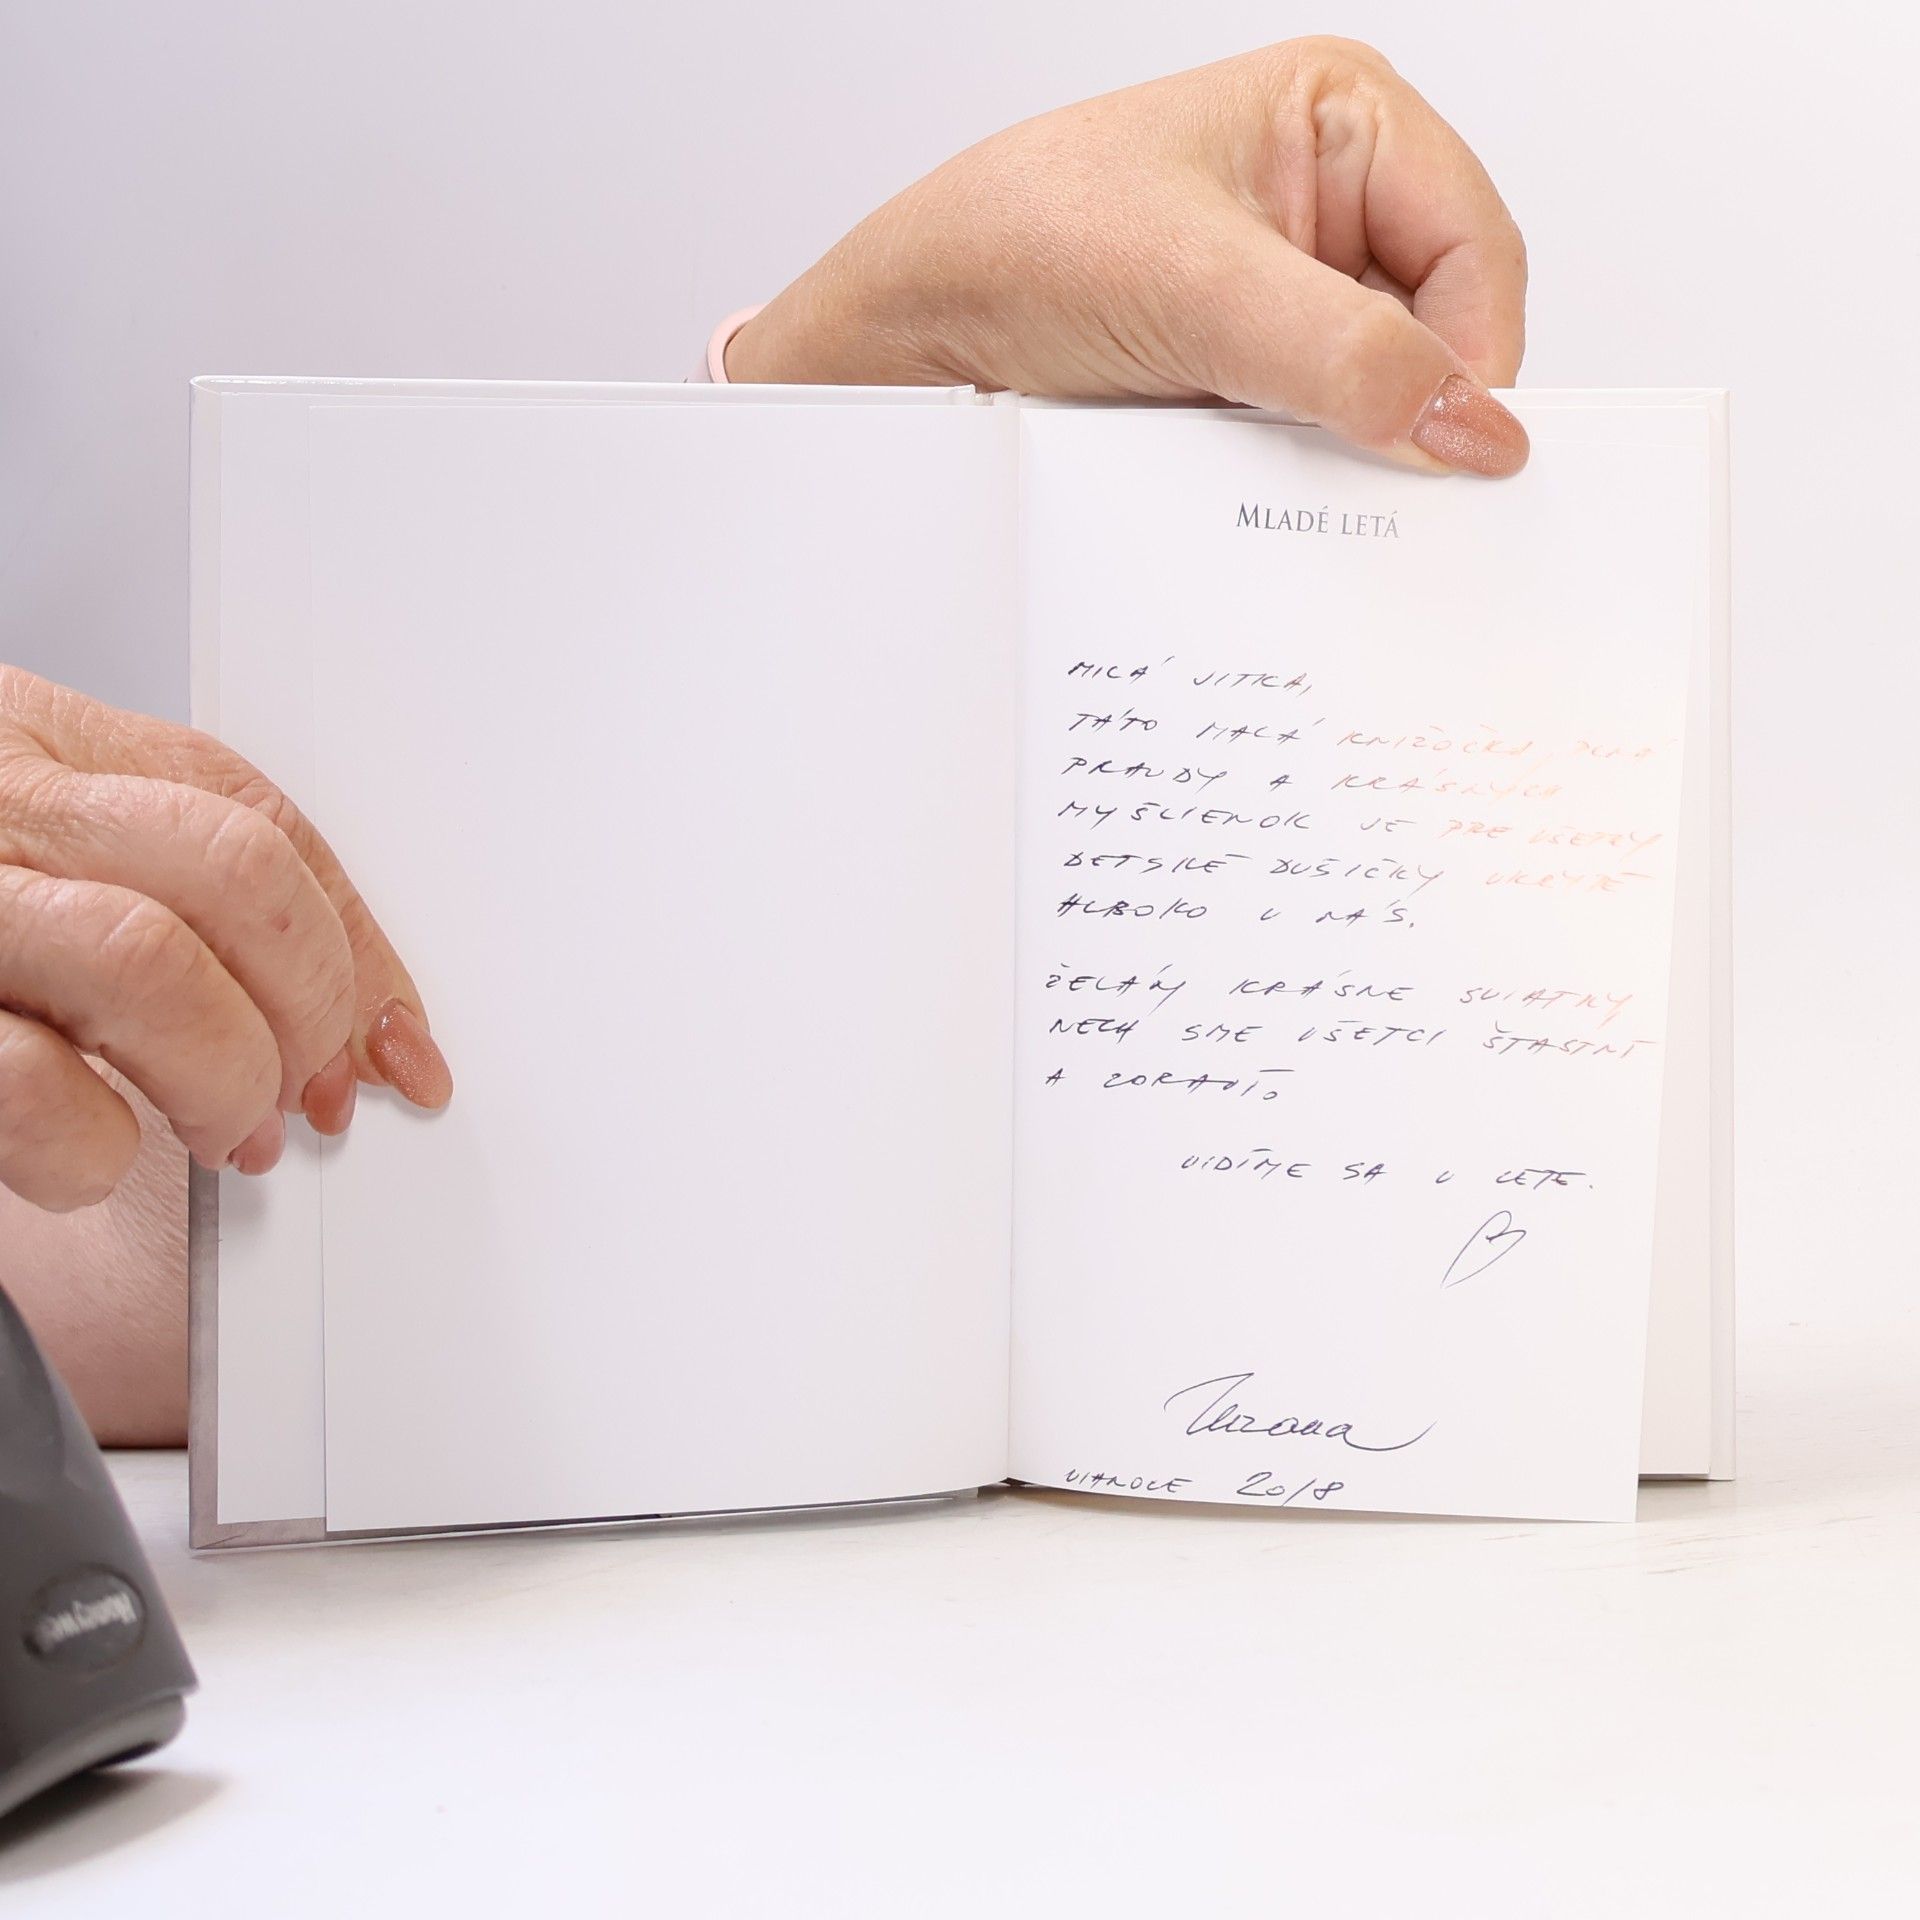 MLADÉ LETÁ
MILÁ JITKA,
TÁTO MALÁ KNIŽOČKA, PLNÁ
PRAVDY A KRÁSNYCH
MYŠLIENOK JE PRE VŠETKY
DETSKÉ DUŠIČKY UKRYTÉ
HLBOKO V NÁS.
ŽELÁM KRÁSNE SVIATKY,
NECH SME VŠETCI ŠTASTNÍ
A ZDRAVÍ.
VIDÍME SA V LETE.
Zuzana
VIANOCE 2018
Honeywell